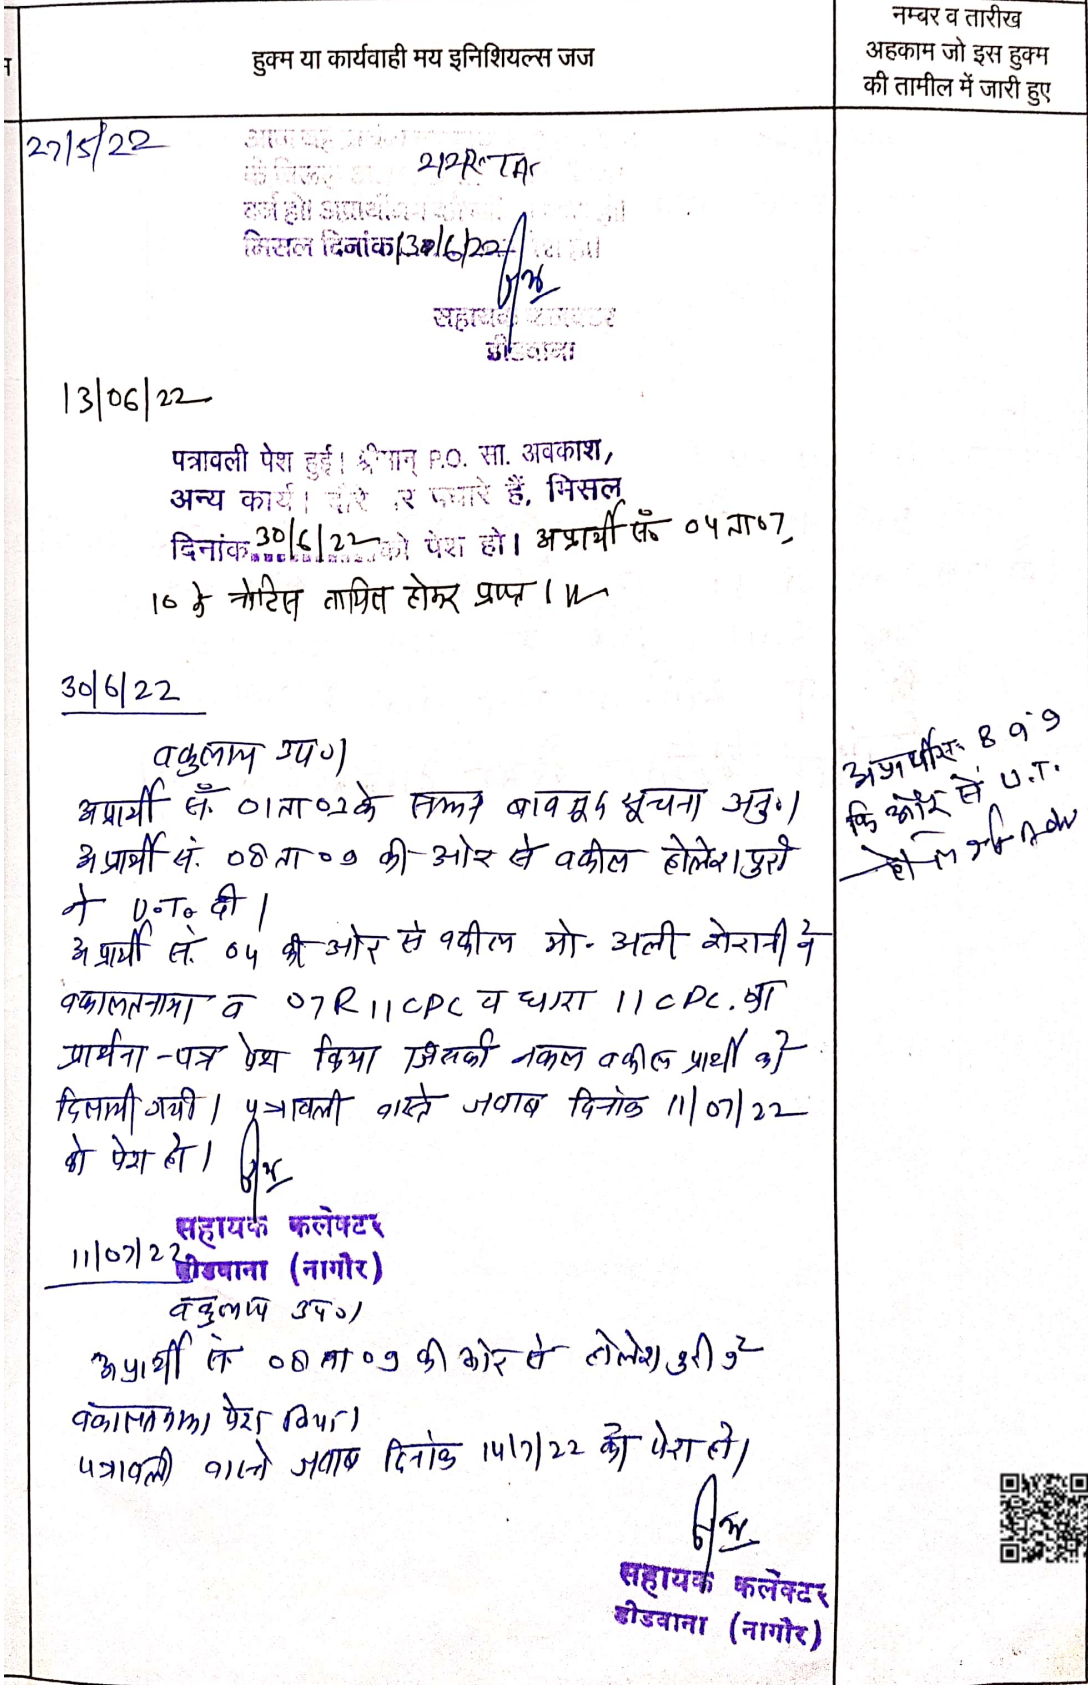 हुक्म या कार्यवाही मय इनिशियल्स जज
नम्बर व तारीख
अहकाम जो इस हुक्म
की तामील में जारी हुए
27/5/22
मिसल दिनांक 30/6/22
सहायक कलक्टर
डीडवाना
13/06/22
पत्रावली पेश हुई। श्रीमान् P.O. सा. अवकाश,
अन्य कार्य। दौरे पर पधारे हैं, मिसल
दिनांक 30/6/22 को पेश हो। अप्रार्थी सं. 04 ता 07,
10 के नोटिस तामिल होकर प्राप्त।
30/6/22
वकुलाय उप०।
अप्रार्थी सं. 01 ता 02 के बावजूद सूचना अनु०।
अप्रार्थी सं. 08 ता 09 की ओर से वकील होलेश पुरी
ने U.T. दी।
अप्रार्थी सं. 04 की ओर से वकील मो. अली शेरानी ने
वकालतनामा व 07R11CPC व धारा 11 CPC. का
प्रार्थना-पत्र पेश किया जिसकी नकल वकील प्रार्थी को
दिलायी गयी। पत्रावली वास्ते जवाब दिनांक 11/07/22
को पेश हो।
सहायक कलेक्टर
डीडवाना (नागौर)
अप्रार्थी सं. 8 व 9
कि ओर से U.T.
11/07/22
वकुलाय उप०।
अप्रार्थी सं. 08 ता 09 की ओर से होलेश पुरी ने
वकालतनामा पेश किया।
पत्रावली वास्ते जवाब दिनांक 14/7/22 को पेश हो।
सहायक कलेक्टर
डीडवाना (नागौर)